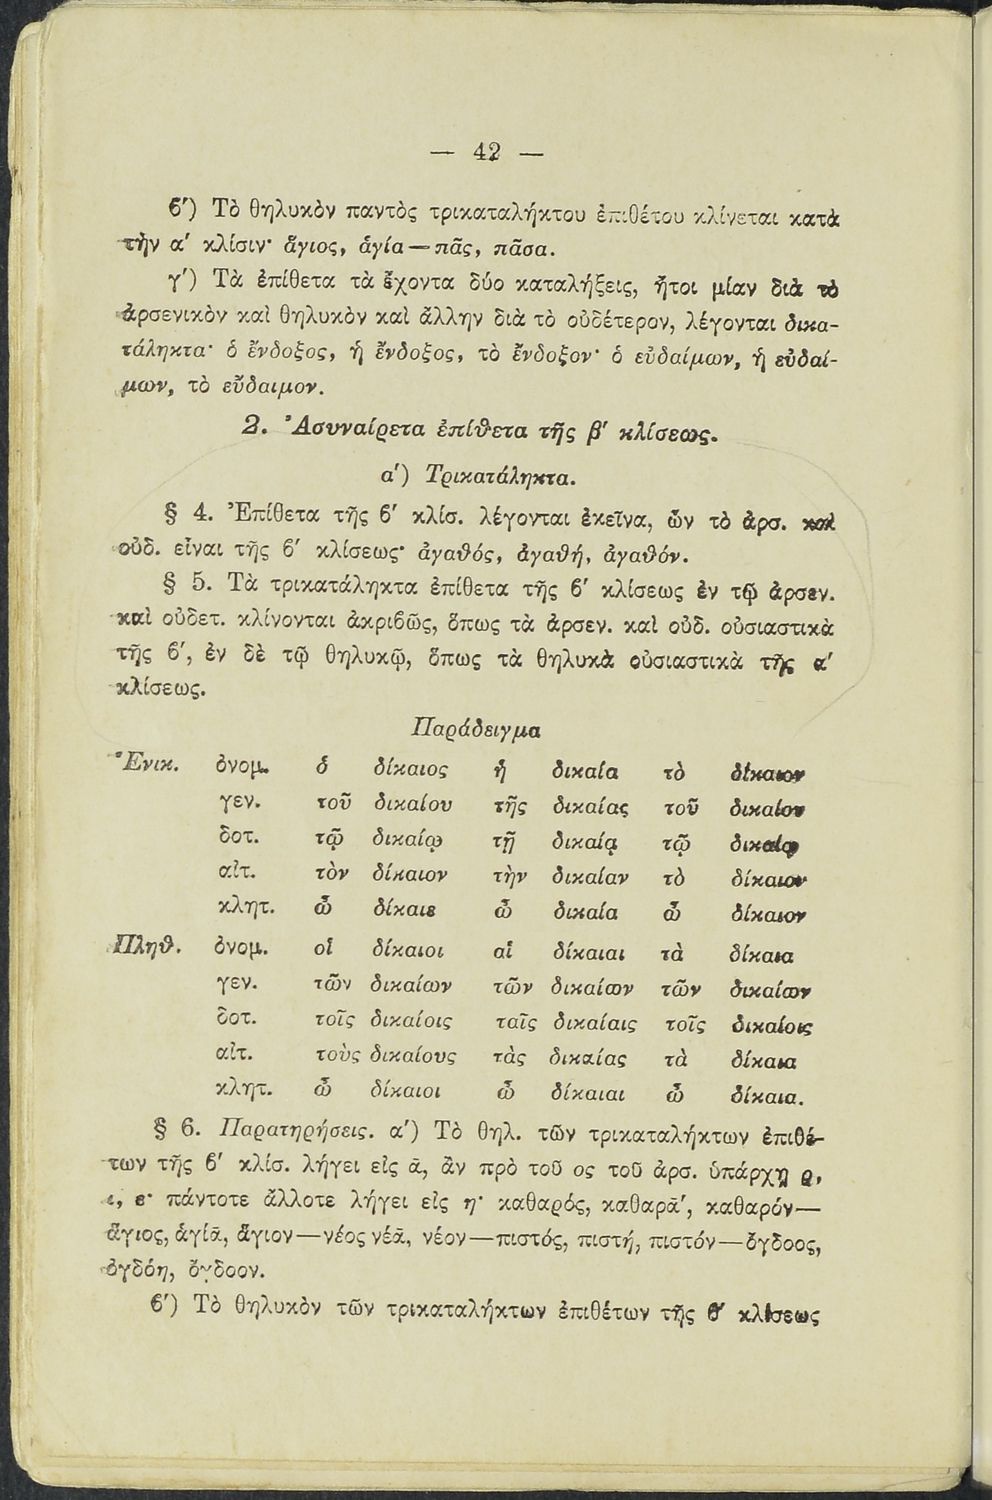 — 42 —
β′) Τὸ θηλυκὸν παντὸς τρικαταλήκτου ἐπιθέτου κλίνεται κατὰ
τὴν α′ κλίσιν· ἅγιος, ἁγία — πᾶς, πᾶσα.
γ′) Τὰ ἐπίθετα τὰ ἔχοντα δύο καταλήξεις, ἤτοι μίαν διὰ τὸ
ἀρσενικὸν καὶ θηλυκὸν καὶ ἄλλην διὰ τὸ οὐδέτερον, λέγονται δικα-
τάληκτα· ὁ ἔνδοξος, ἡ ἔνδοξος, τὸ ἔνδοξον· ὁ εὐδαίμων, ἡ εὐδαί-
μων, τὸ εὔδαιμον.
2. Ἀσυναίρετα ἐπίθετα τῆς β′ κλίσεως.
α′) Τρικατάληκτα.
§ 4. Ἐπίθετα τῆς β′ κλίσ. λέγονται ἐκεῖνα, ὧν τὸ ἀρσ. καὶ
οὐδ. εἶναι τῆς β′ κλίσεως· ἀγαθός, ἀγαθή, ἀγαθόν.
§ 5. Τὰ τρικατάληκτα ἐπίθετα τῆς β′ κλίσεως ἐν τῷ ἀρσεν.
καὶ οὐδετ. κλίνονται ἀκριβῶς, ὅπως τὰ ἀρσεν. καὶ οὐδ. οὐσιαστικὰ
τῆς β′, ἐν δὲ τῷ θηλυκῷ, ὅπως τὰ θηλυκὰ οὐσιαστικὰ τῆς α′
κλίσεως.
Παράδειγμα
Ἑνικ. ὀνομ. ὁ δίκαιος ἡ δικαία τὸ δίκαιον
γεν. τοῦ δικαίου τῆς δικαίας τοῦ δικαίου
δοτ. τῷ δικαίῳ τῇ δικαίᾳ τῷ δικαίῳ
αἰτ. τὸν δίκαιον τὴν δικαίαν τὸ δίκαιον
κλητ. ὦ δίκαιε ὦ δικαία ὦ δίκαιον
Πληθ. ὀνομ. οἱ δίκαιοι αἱ δίκαιαι τὰ δίκαια
γεν. τῶν δικαίων τῶν δικαίων τῶν δικαίων
δοτ. τοῖς δικαίοις ταῖς δικαίαις τοῖς δικαίοις
αἰτ. τοὺς δικαίους τὰς δικαίας τὰ δίκαια
κλητ. ὦ δίκαιοι ὦ δίκαιαι ὦ δίκαια.
§ 6. Παρατηρήσεις. α′) Τὸ θηλ. τῶν τρικαταλήκτων ἐπιθέ-
των τῆς β′ κλίσ. λήγει εἰς ᾱ, ἂν πρὸ τοῦ ος τοῦ ἀρσ. ὑπάρχῃ ρ,
ι, ε· πάντοτε ἄλλοτε λήγει εἰς η· καθαρός, καθαρᾱ́, καθαρόν—
ἅγιος, ἁγίᾱ, ἅγιον—νέος νέᾱ, νέον—πιστός, πιστή, πιστόν—ὄγδοος,
ὀγδόη, ὄγδοον.
β′) Τὸ θηλυκὸν τῶν τρικαταλήκτων ἐπιθέτων τῆς β′ κλίσεως